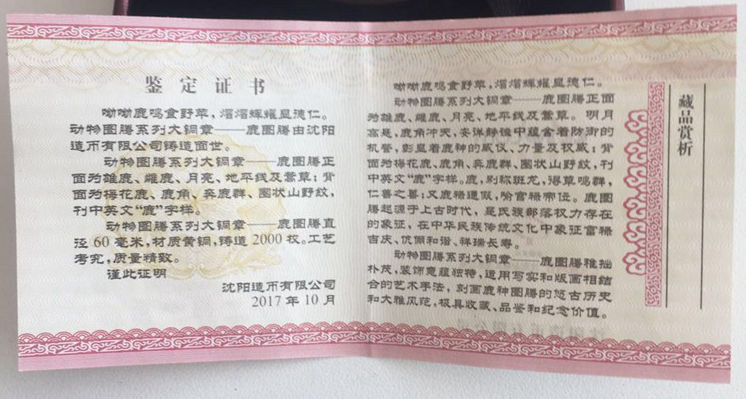 鉴定证书
呦呦鹿鸣食野苹，熠熠辉耀显德仁。
动物图腾系列大铜章——鹿图腾由沈阳
造币有限公司铸造面世。
动物图腾系列大铜章——鹿图腾正
面为雄鹿、雌鹿、月亮、地平线及蒿草；背
面为梅花鹿、鹿角、奔鹿群、图状山野纹，
刊中英文“鹿”字样。
动物图腾系列大铜章——鹿图腾直
径60毫米，材质黄铜，铸造2000枚。工艺
考究，质量精致。
谨此证明
沈阳造币有限公司
2017年10月
藏品赏析
呦呦鹿鸣食野苹，熠熠辉耀显德仁。
动物图腾系列大铜章——鹿图腾正面
为雄鹿、雌鹿、月亮、地平线及蒿草。明月
高悬，鹿角冲天，安详静谧中蕴含着防御的
机警，彰显着鹿神的威仪、力量及权威；背
面为梅花鹿、鹿角、奔鹿群、图状山野纹，
刊中英文“鹿”字样。鹿，别称斑龙，得草鸣群，
仁善之兽；又鹿禄道假，喻富禄帝位。鹿图
腾起源于上古时代，是氏族部落权力存在
的象征，在中华民族传统文化中象征富禄
吉庆、优俪和谐、祥瑞长寿。
动物图腾系列大铜章——鹿图腾稚拙
朴茂，装饰意蕴独特，适用写实和版画相结
合的艺术手法，刻画鹿神图腾的悠古历史
和大雅风范，极具收藏、品鉴和纪念价值。